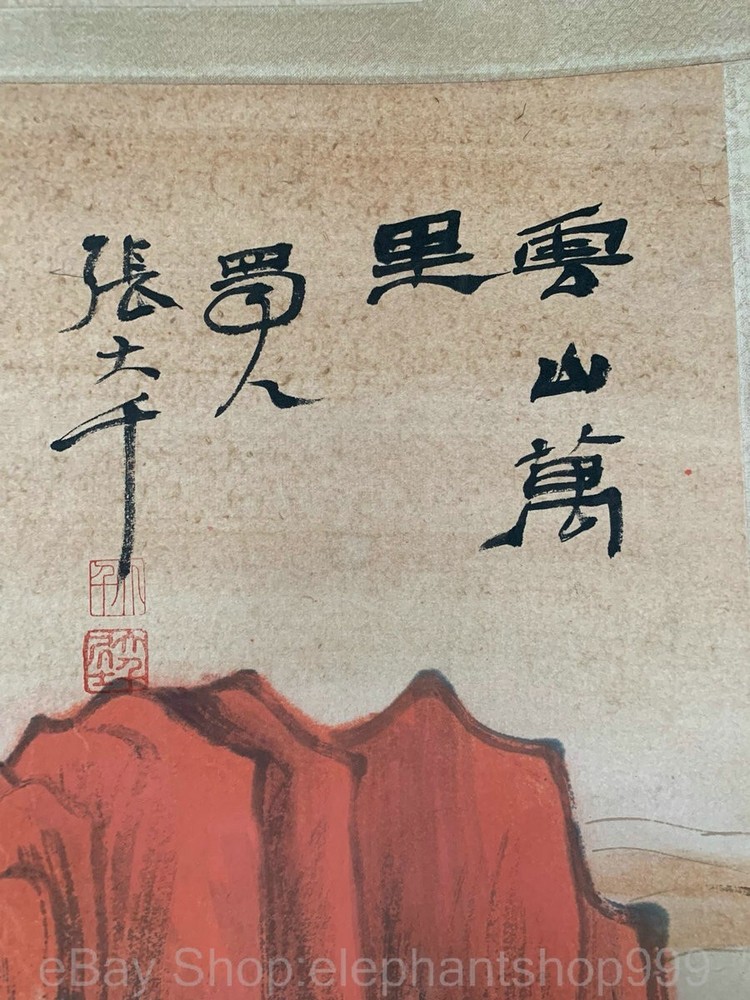 雲山萬
里
蜀人
張大千
eBay Shop:elephantshop999